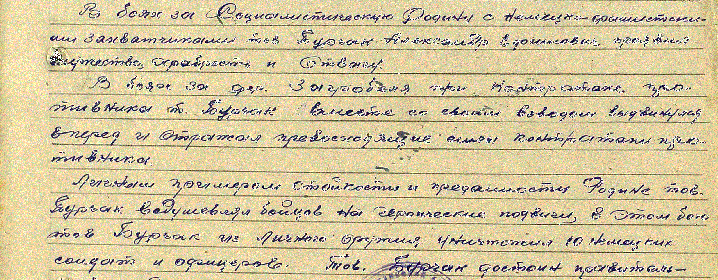 В боях за Социалистическую Родину с немецко-фашистски-
ми захватчиками тов Бурчак Александр проявил
мужество, храбрость и отвагу.
В боях за дер. при контратаке про-
тивника т. Бурчак вместе со своим взводом выдвинулся
вперед и отражал превосходящие силы контратаки проти-
тивника
Личным примером стойкости и преданности Родине тов.
Бурчак воодушевлял бойцов на героические подвиги, в этом бою
тов Бурчак из личного оружия уничтожил 10 немецких
солдат и офицеров. Тов. Бурчак достоин правитель-